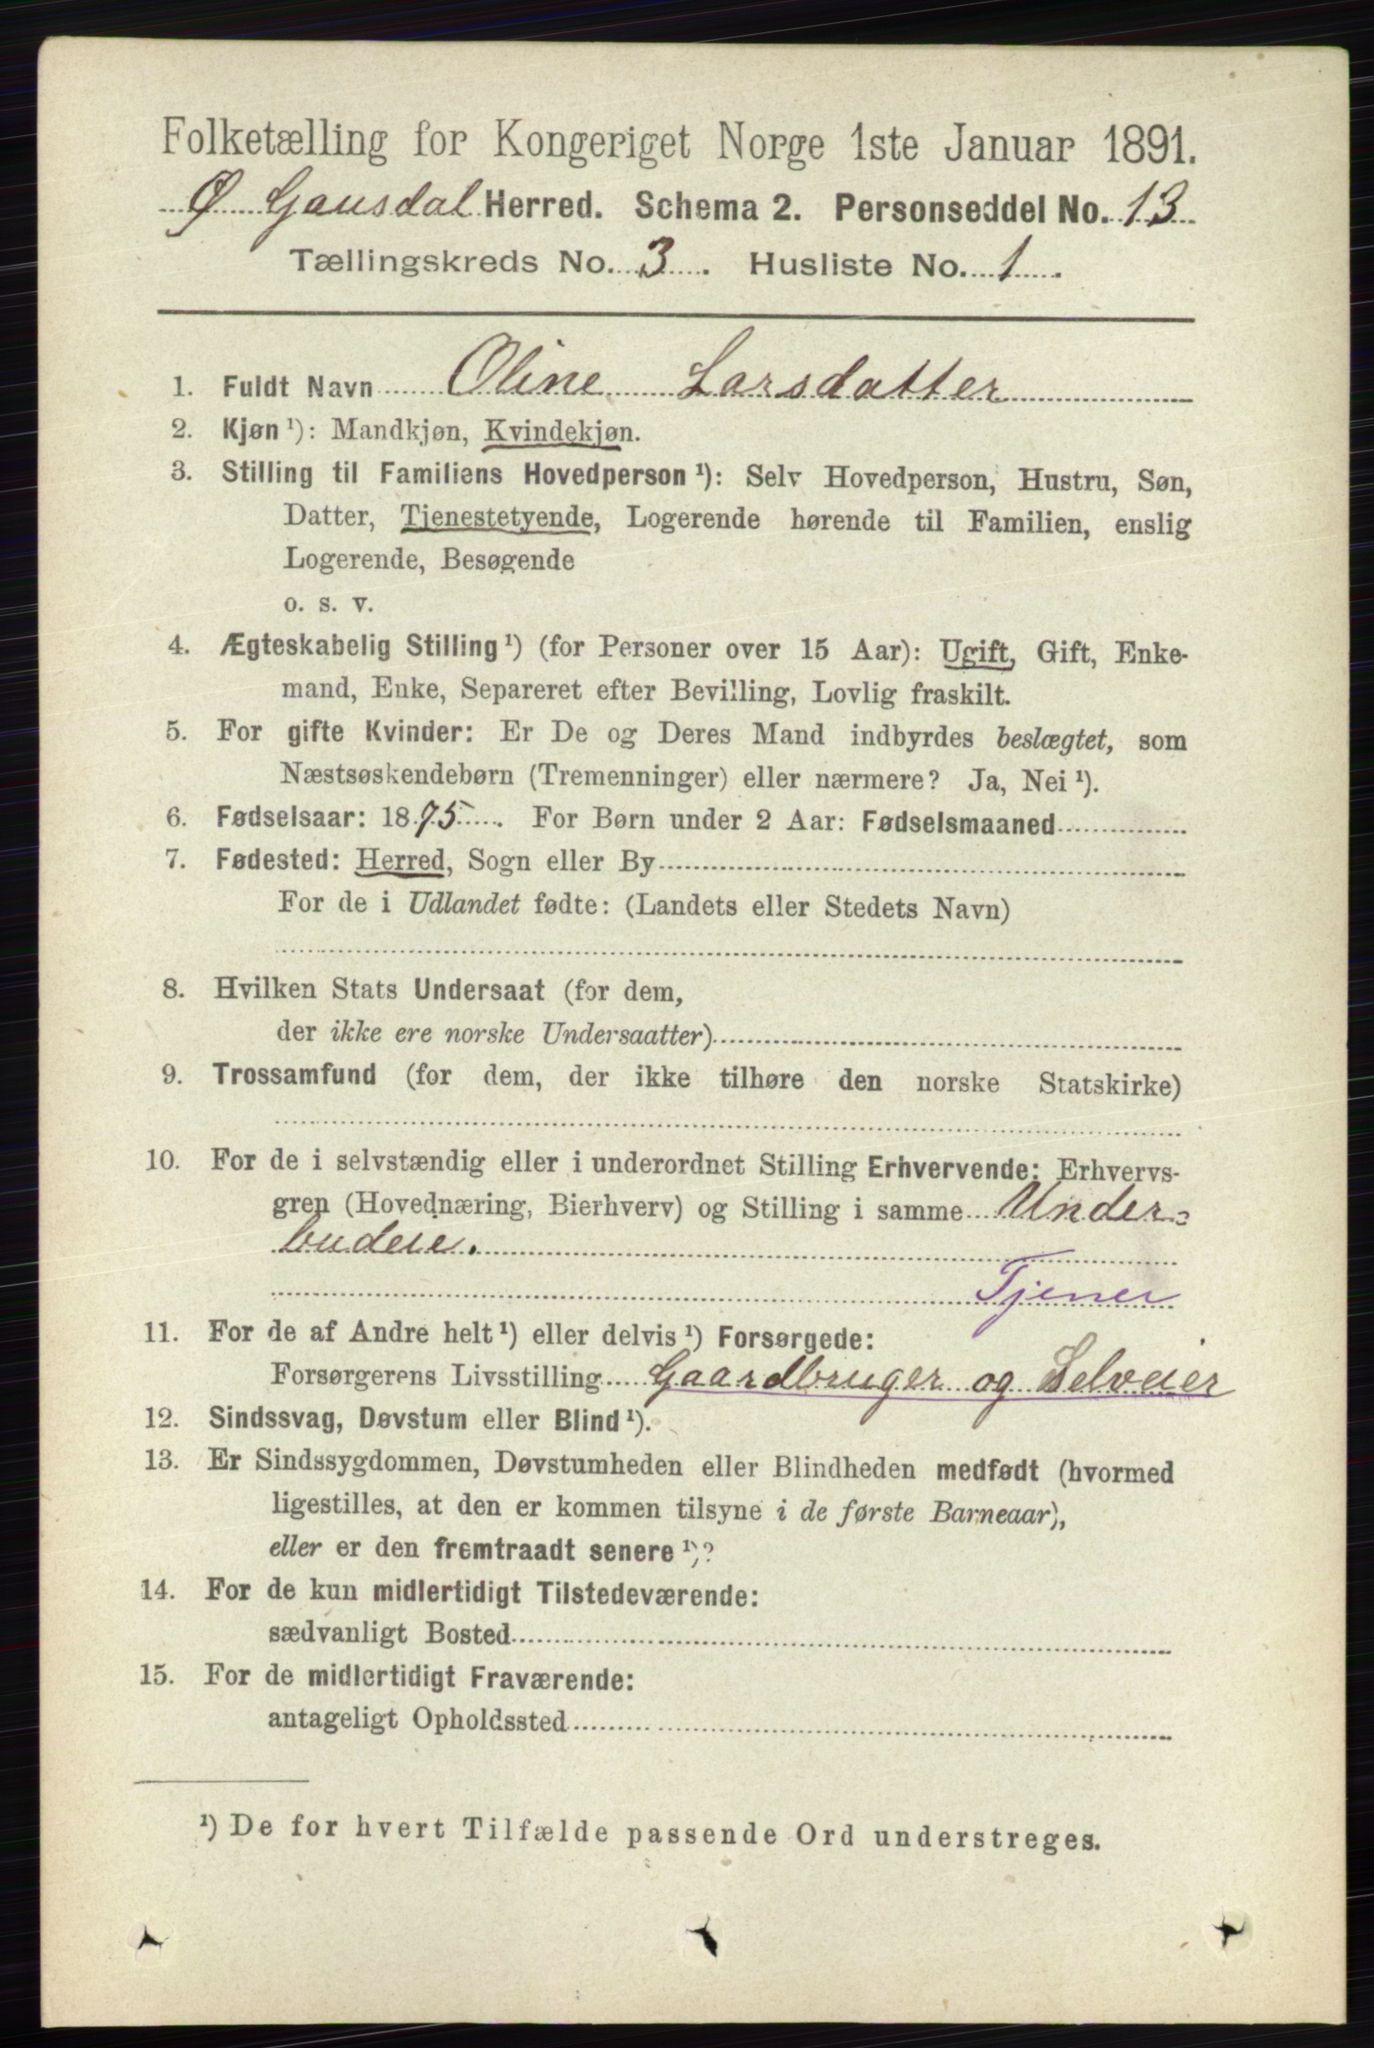 Folketælling for Kongeriget Norge 1ste Januar 1891.
Ø Gausdal Herred. Schema 2. Personseddel No. 13
Tællingskreds No. 3. Husliste No. 1.
1. Fuldt Navn Oline Larsdatter
2. Kjøn ¹): Mandkjøn, Kvindekjøn.
3. Stilling til Familiens Hovedperson ¹): Selv Hovedperson, Hustru, Søn,
Datter, Tjenestetyende, Logerende hørende til Familien, enslig
Logerende, Besøgende
o. s. v.
4. Ægteskabelig Stilling ¹) (for Personer over 15 Aar): Ugift, Gift, Enke-
mand, Enke, Separeret efter Bevilling, Lovlig fraskilt.
5. For gifte Kvinder: Er De og Deres Mand indbyrdes beslægtet, som
Næstsøskendebørn (Tremenninger) eller nærmere? Ja, Nei ¹).
6. Fødselsaar: 1875. For Børn under 2 Aar: Fødselsmaaned
7. Fødested: Herred, Sogn eller By
For de i Udlandet fødte: (Landets eller Stedets Navn)
8. Hvilken Stats Undersaat (for dem,
der ikke ere norske Undersaatter)
9. Trossamfund (for dem, der ikke tilhøre den norske Statskirke)
10. For de i selvstændig eller i underordnet Stilling Erhvervende: Erhvervs-
gren (Hovednæring, Bierhverv) og Stilling i samme Under=
budeie.
Tjener
11. For de af Andre helt ¹) eller delvis ¹) Forsørgede:
Forsørgerens Livsstilling Gaardbruger og Selveier
12. Sindssvag, Døvstum eller Blind ¹).
13. Er Sindssygdommen, Døvstumheden eller Blindheden medfødt (hvormed
ligestilles, at den er kommen tilsyne i de første Barneaar),
eller er den fremtraadt senere ¹)?
14. For de kun midlertidigt Tilstedeværende:
sædvanligt Bosted
15. For de midlertidigt Fraværende:
antageligt Opholdssted
¹) De for hvert Tilfælde passende Ord understreges.